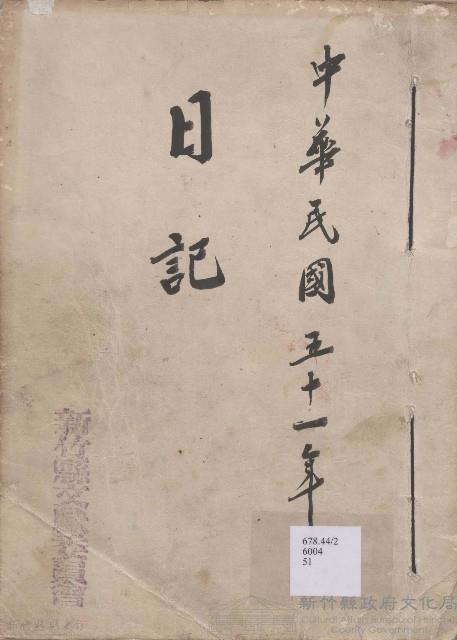 中華民國五十一年
日記
新竹縣文獻委員會
678.44/2
6004
51
新竹縣政府文化局
Cultural Affairs Bureau of Hsinchu
County Government